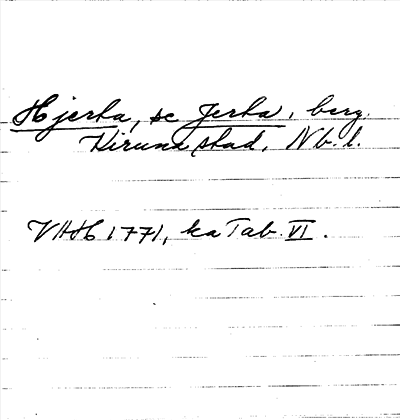 Hjerta, se Jerta, berg.
Kiruna stad, Nb. l.
VHH 1771, ka Tab. VI.